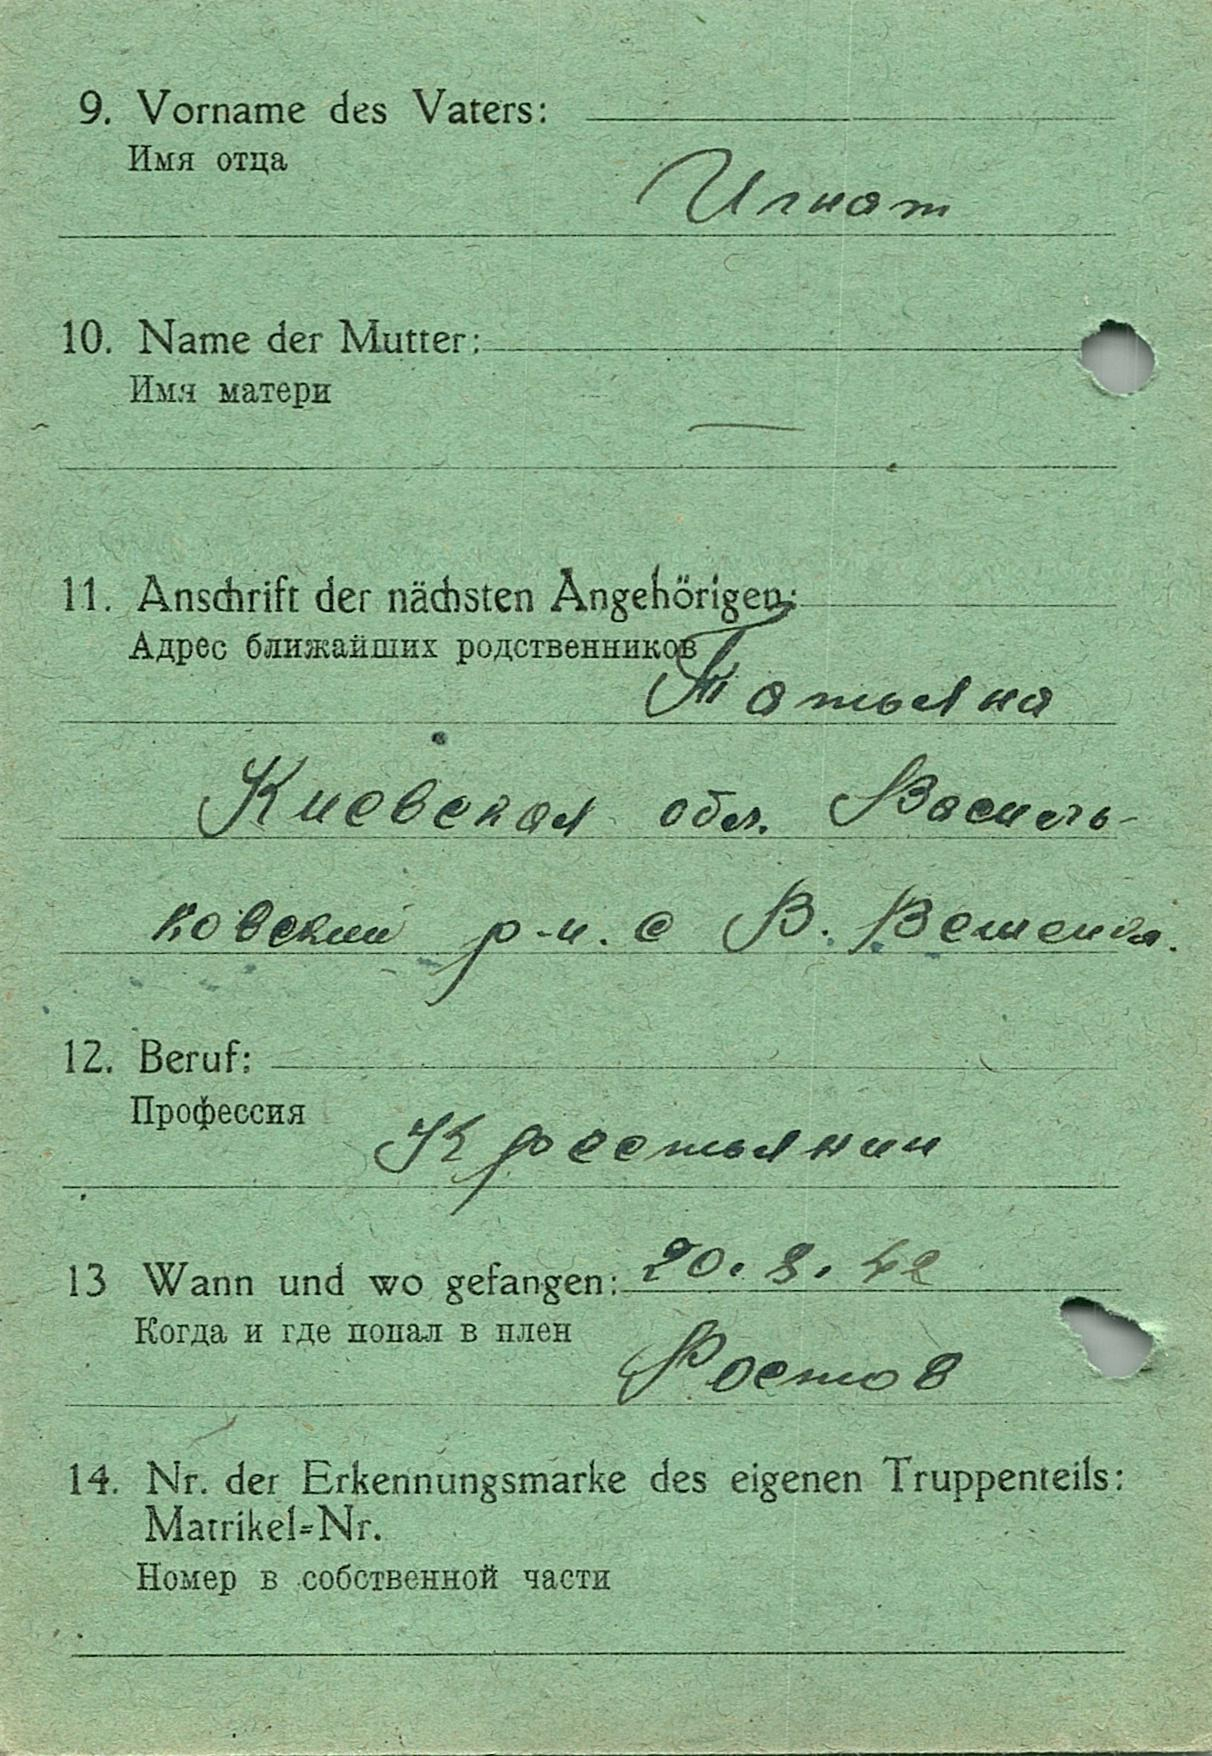 9. Vorname des Vaters:
Имя отца
Игнат
10. Name der Mutter:
Имя матери
—
11. Anschrift der nächsten Angehörigen:
Адрес ближайших родственников
Татьяна
Киевская обл. Василь-
ковский р-н. с В.
12. Beruf:
Профессия
Крестьянин
13 Wann und wo gefangen: 20. 8. 42
Когда и где попал в плен
Ростов
14. Nr. der Erkennungsmarke des eigenen Truppenteils:
Matrikel=Nr.
Номер в собственной части